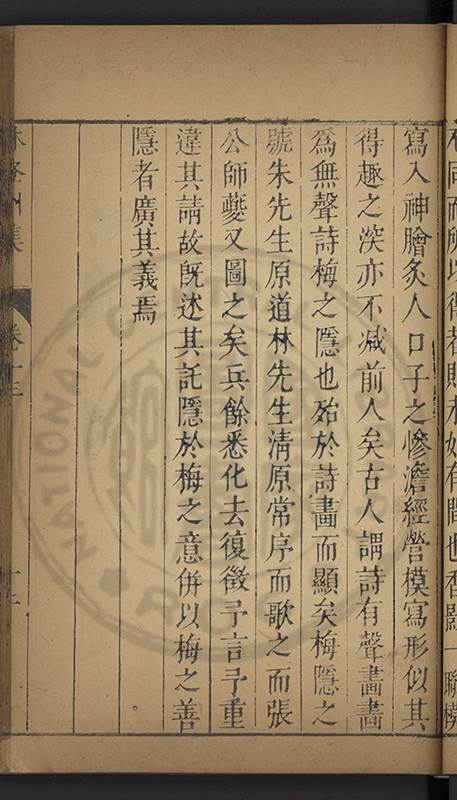 不同而所以得者則未始有間也香影一聯模
寫入神膾炙人口子之慘澹經營模寫形似其
得趣之深亦不减前人矣古人謂詩有聲畫畫
爲無聲詩梅之隱也殆於詩畫而顯矣梅隱之
號朱先生原道林先生清原常序而歌之而張
公師夔又圖之矣兵餘悉化去復徵予言予重
違其請故旣述其託隱於梅之意併以梅之善
隱者廣其義焉
集 卷十三 十三